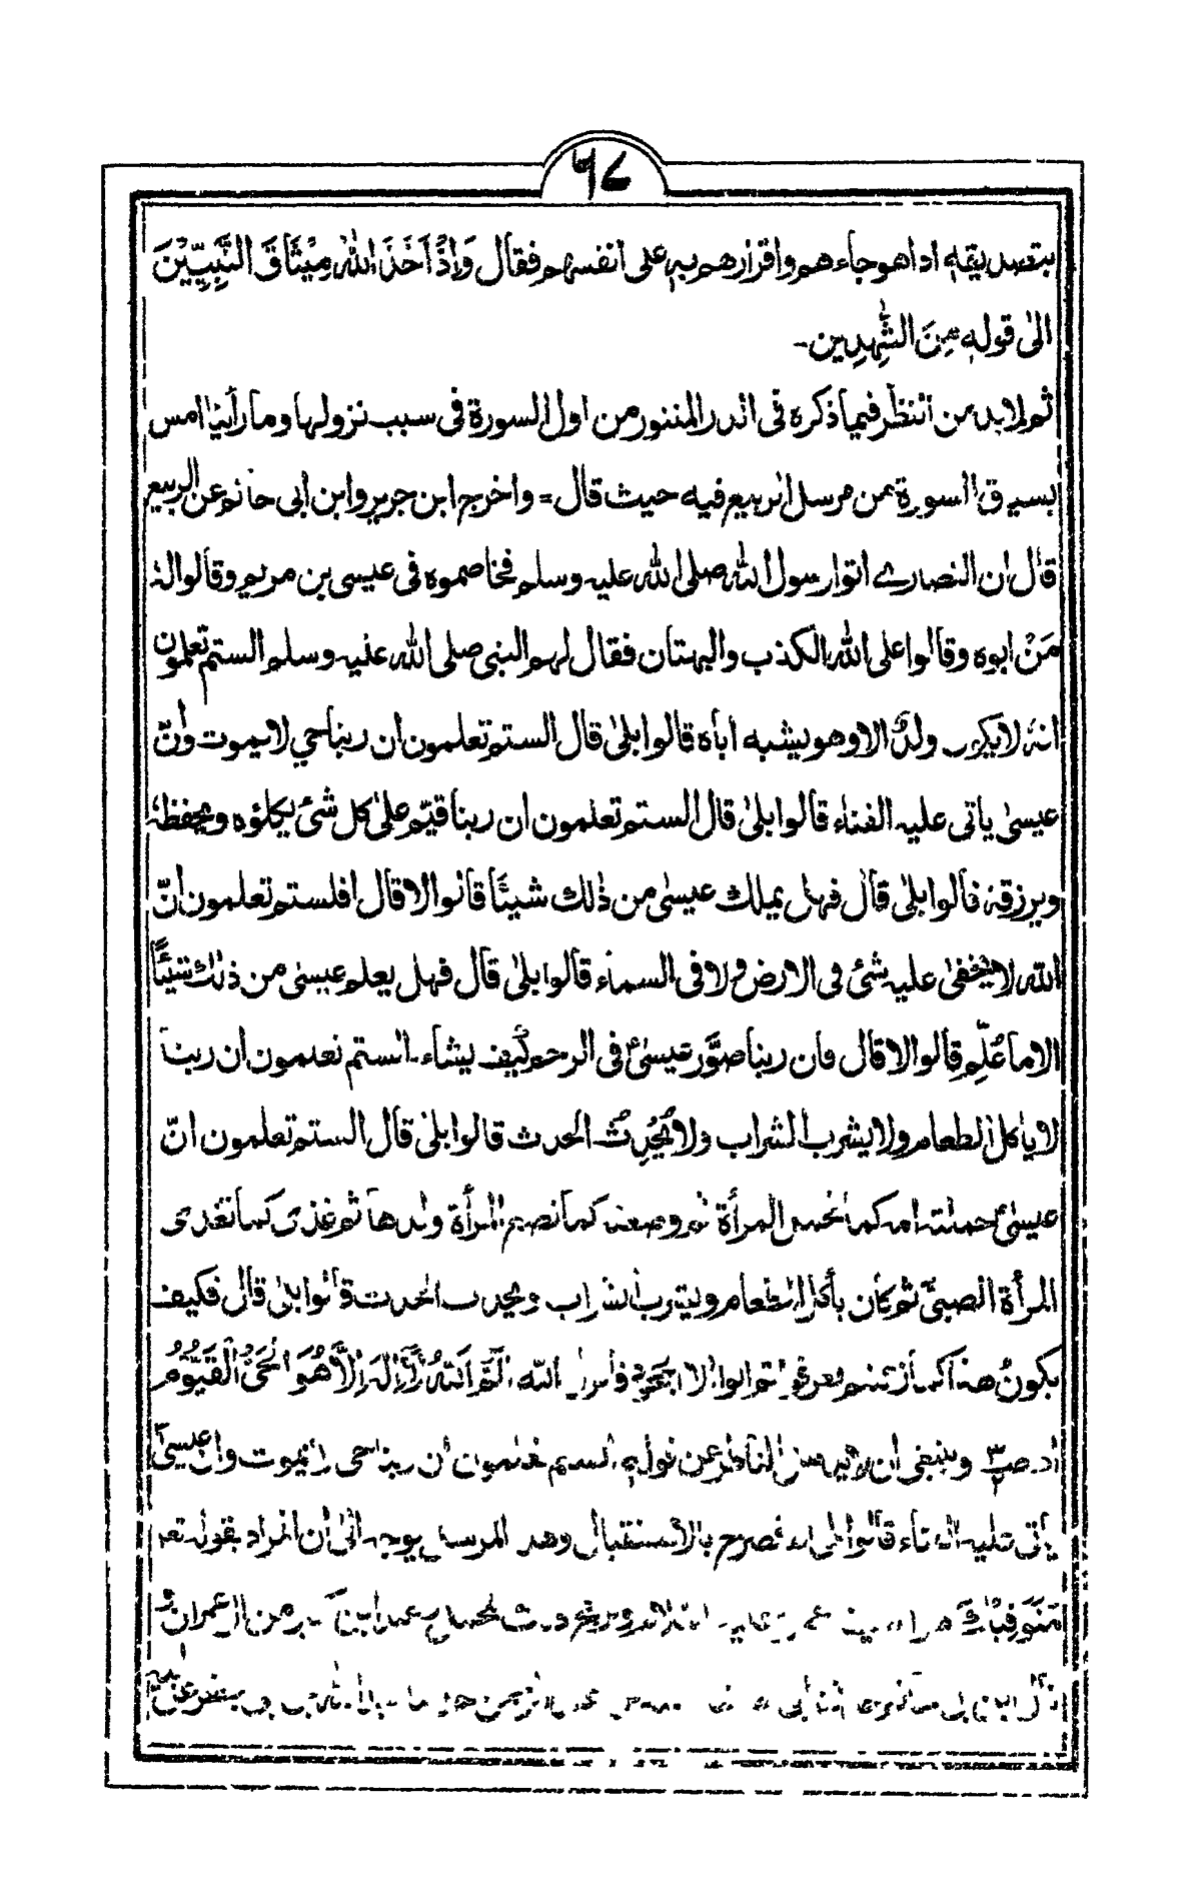 ٦٨
بتصديقه اذا هو جاءهم واقرارهم به على انفسهم فقال وَاِذْ اَخَذَ اللهُ مِيْثَاقَ النَّبِيِّيْنَ
الىٰ قوله مِنَ الشّٰهِدِين-
ثم لا بد من ان ننظر فيما ذكره فى الدر المنثور من اول السورة فى سبب نزولها وما رأينا امس
بسياق السورة من مرسل الربيع فيه حيث قال = واخرج ابن جرير وابن ابى حاتم عن الربيع
قال ان النصارے اتوا رسول الله صلى الله عليه وسلم فخاصموه فى عيسى بن مريم وقالوا لهٗ
مَنْ ابوه وقالوا على الله الكذب والبهتان فقال لهم النبى صلى الله عليه وسلم الستم تعلمون
انهٗ لا يكون ولدٌ الا وهو يشبه اباه قالوا بلىٰ قال الستم تعلمون ان ربنا حي لا يموت وانّ
عيسىٰ ياتى عليه الفناء قالوا بلىٰ قال الستم تعلمون ان ربنا قيّم علىٰ كل شئ يكلؤه ويحفظهٗ
ويرزقهٗ قالوا بلىٰ قال فهل يملك عيسىٰ من ذٰلك شيئًا قالوا لا قال افلستم تعلمون انّ
الله لا يخفىٰ عليه شئ فى الارض ولا فى السماء قالوا بلىٰ قال فهل يعلم عيسىٰ من ذٰلك شيئًا
الا ما عُلِّم قالوا لا قال فان ربنا صوَّر عيسىٰ فى الرحم كيف يشاء۔ الستم تعلمون ان ربنا
لا ياكل الطعام ولا يشرب الشراب ولا يُحْدِثُ الحدث قالوا بلىٰ قال الستم تعلمون انّ
عيسىٰ حملته امه كما تحمل المرأة ثم وضعته كما تضع المرأة ولدها ثم غذى كما تغذى
المرأة الصبىّ ثم كان يأكل الطعام ويشرب الشراب ويحدث الحدث قالوا بلىٰ قال فكيف
يكونُ هذا كما زعمتم فعرفوا ثم ابوا الا جحودا فأنزل الله الٓمّٓ اَللهُ لَآ اِلٰهَ اِلَّا هُوَ الْحَيُّ الْقَيُّوْمُ
وينبغى ان لا الناظر عن قوله الستم تعلمون ان ربنا حى لا يموت وان عيسىٰ
يأتى عليه الفناء قالوا بلى فصرح بالاستقبال وهذ المرسل يوجه الىٰ ان المراد بقوله تعہ
مُتَوَفِّيْكَ من اٰل عمران